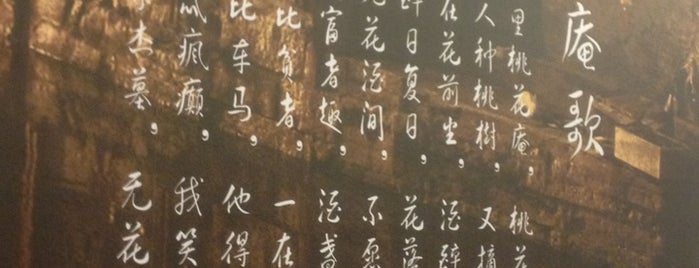 庵歌
里桃花庵，桃花
人种桃樹，又摘
在花前坐，酒醉
醉日复日，花落
花酒间，不愿
富者趣，酒盞
比贫者，一在
比车马，他得
疯癫，我笑
杰墓，无花